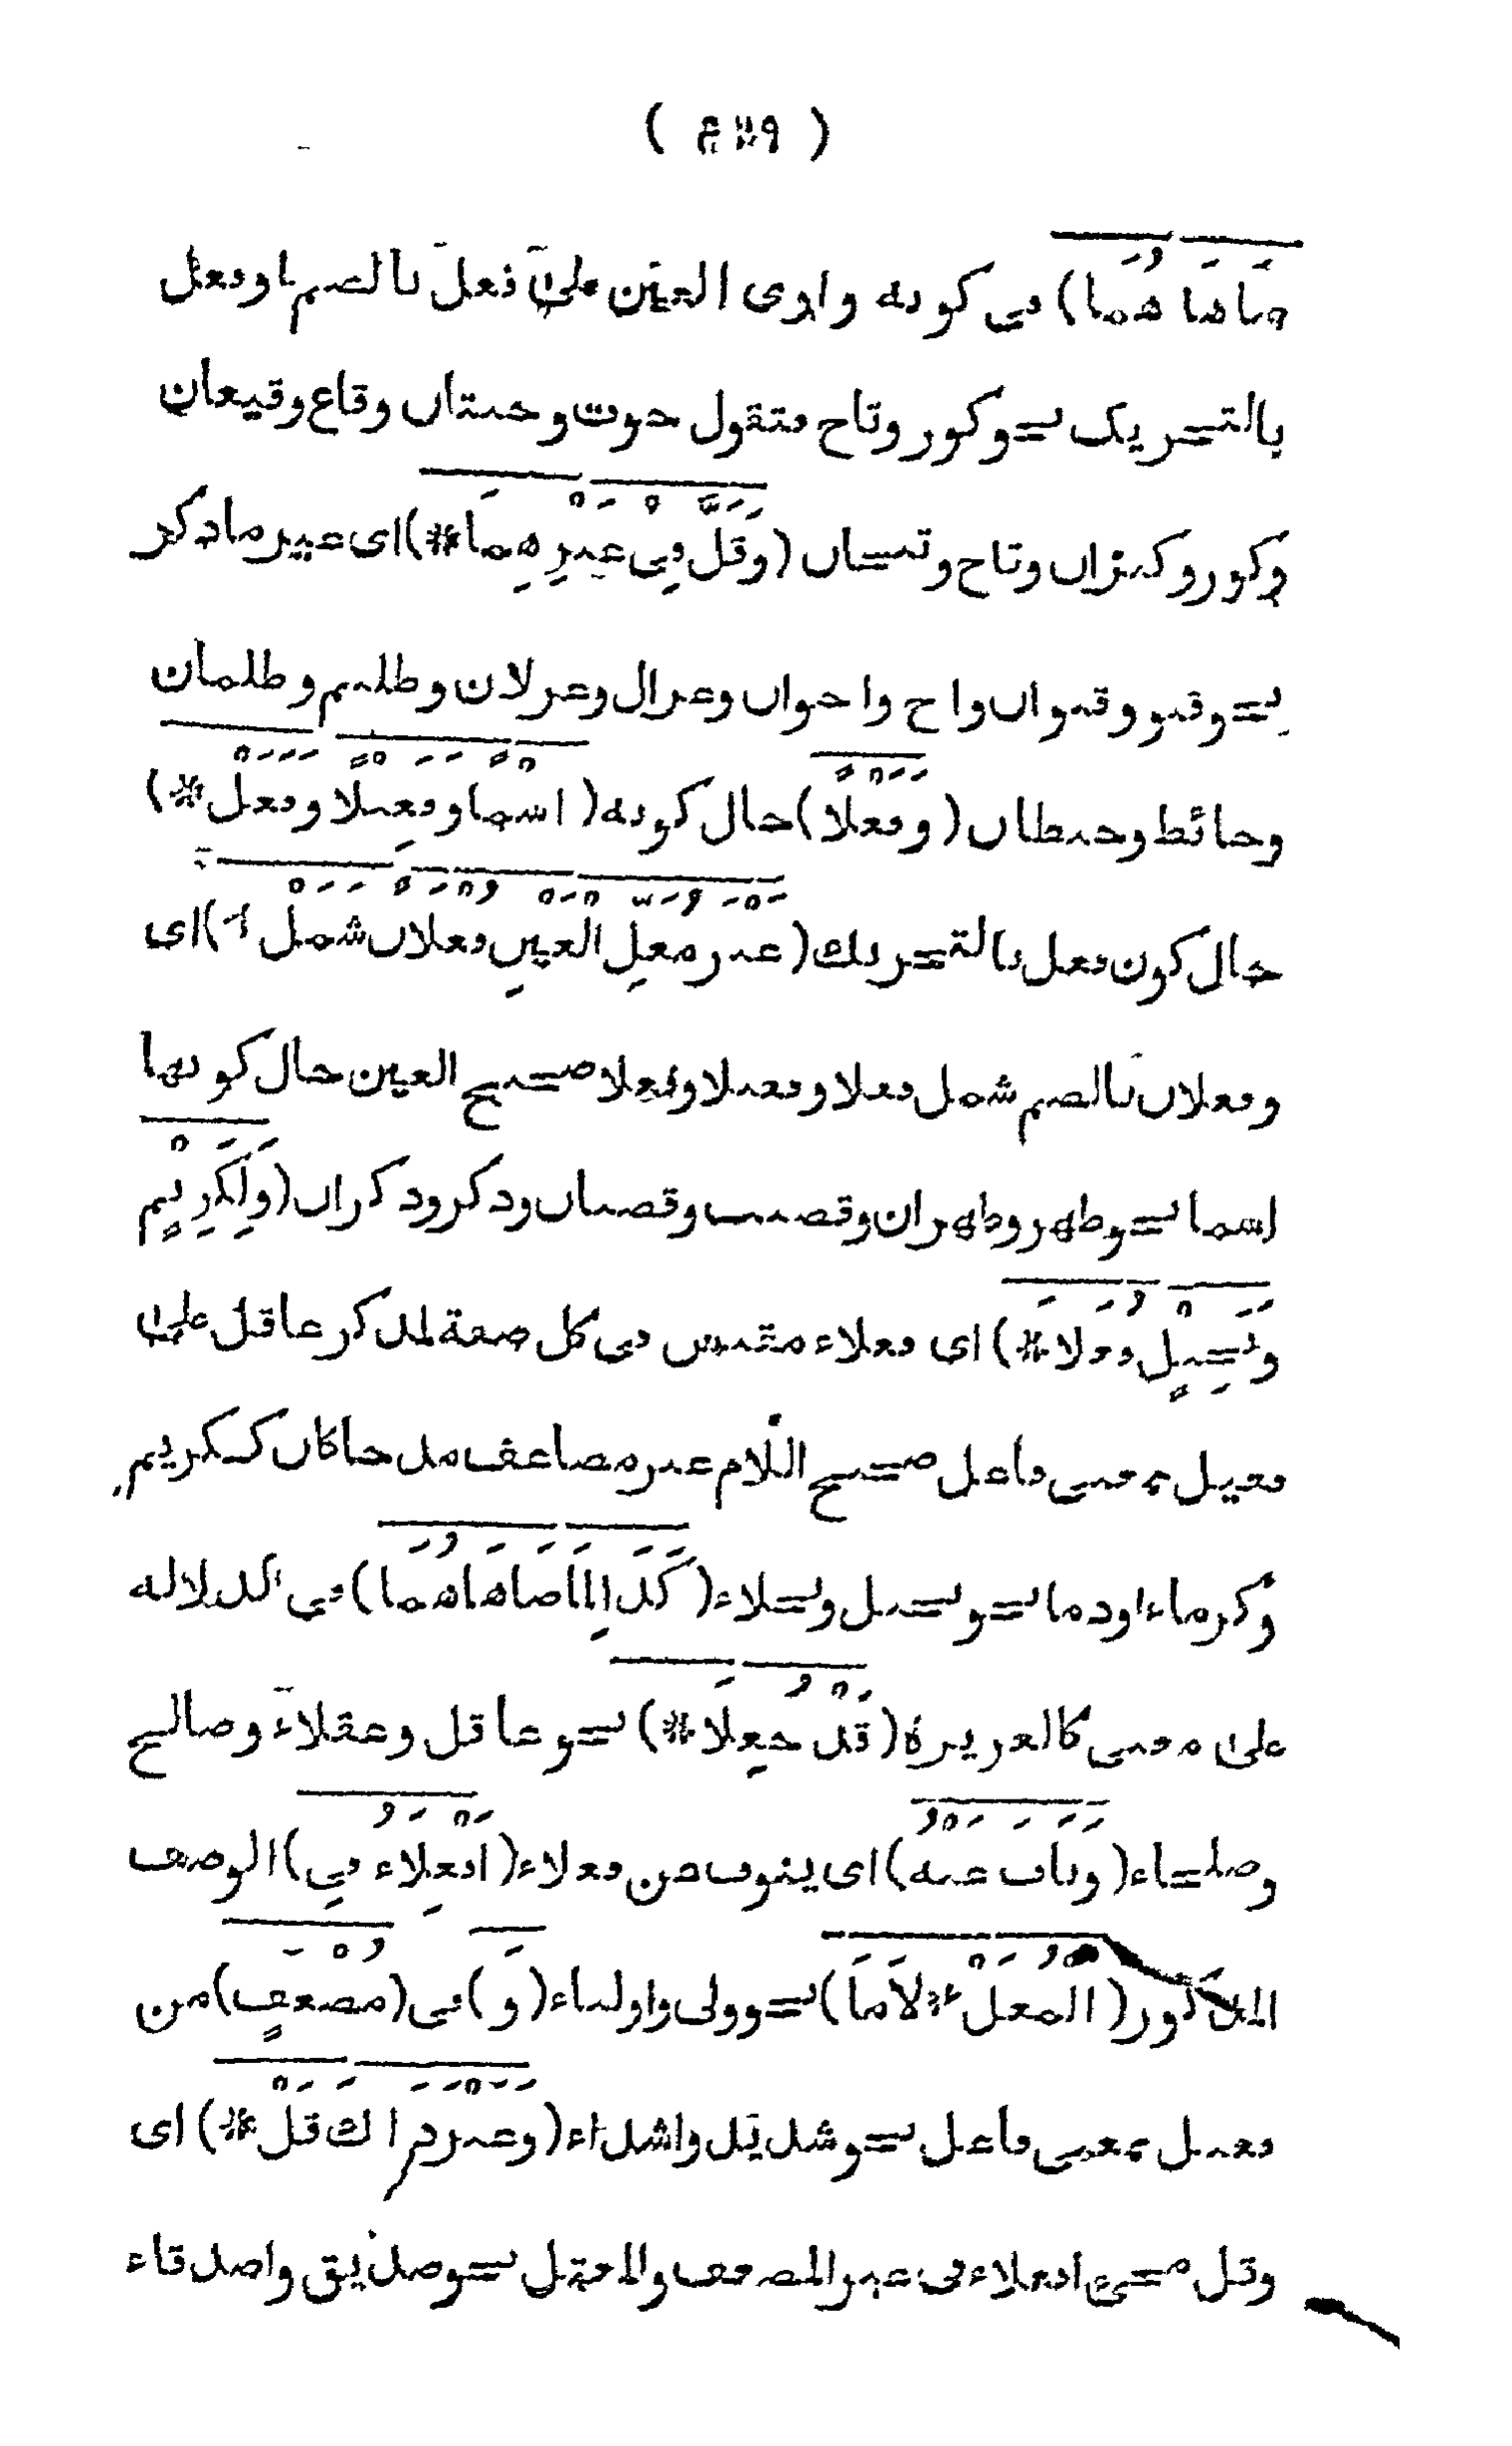 ضاهاهما) في كونه واوى العين على فعل بالضم او فعل
بالتحريك نحو كوز وتاج فتقول حوت وحيتان وقاع وقيعان
وكوز وكيزان وتاج وتيجان (وَقَلَّ فِي غَيْرِهِمَا*) اى غير ما ذكر
نحو قنو وقنوان واخ واخوان وغزال وغزلان وظليم وظلمان
وحائط وحيطان (وفعلًا) حال كونه (اسْمًا وفَعِيلًا وفَعَلْ*)
حال كون فعل بالتحريك (غَيْرَ مُعَلِّ الْعَيْنِ فُعْلَانٌ شَمَلْ*) اى
وفعلان بالضم شمل فعلا وفعيلا وفعلا صحيح العين حال كونها
اسما نحو ظهر وظهران وقضيب وقضبان وذكر وذكران (وَلِكَرِيْمٍ
وبَخِيْلٍ فُعَلَا*) اى فعلاء مقيس فى كل صفة لمذكر عاقل على
فعيل بمعنى فاعل صحيح اللام غير مضاعف مدحا كان ككريم
وكرماء او ذما نحو بخيل وبخلاء (كَذَا لِمَا ضَاهَاهُمَا) فى الدلالة
على معنى كالغريزة (قَدْ جُعِلَا*) نحو عاقل وعقلاء وصالح
وصلحاء (ونَابَ عَنْهُ) اى ينوب من فعلاء (أَفْعِلَاءُ فِي) الوصف
المذكور (الْمُعَلْ*لَامًا) نحو ولى واولياء (و) فى (مُضْعَفٍ) من
فعيل بمعنى فاعل نحو شديد واشداء (وغَيْرُ ذَاكَ قَلْ*) اى
وقل مجىء افعلاء فى غير المضعف والمعتل نحو صديق واصدقاء